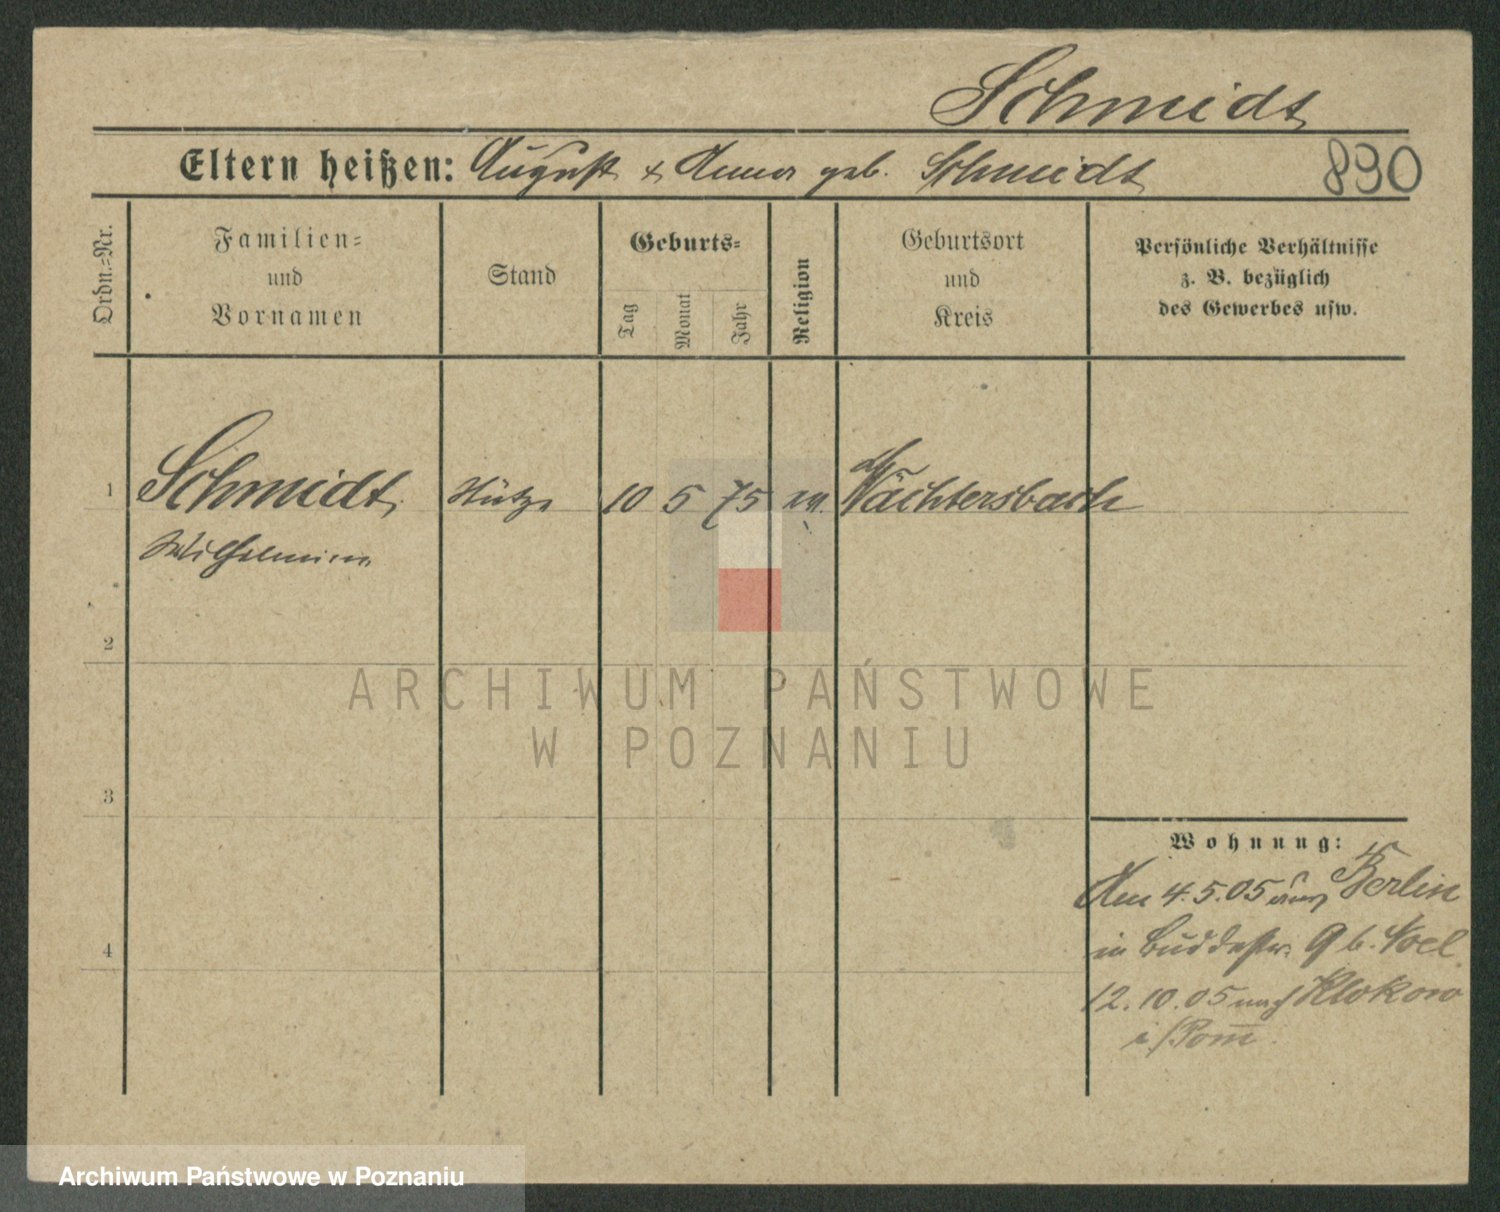 Schmidt
Eltern heißen: August & Anna geb. Schmidt
890
Ordn.=Nr.
Familien=
und
Vornamen
Stand
Geburts=
Tag
Monat
Jahr
Religion
Geburtsort
und
Kreis
Persönliche Verhältnisse
z. B. bezüglich
des Gewerbes usw.
1 Schmidt, Stütze 10 5 75 ev. Wächtersbach
Wilhelmine
2
3
4
Wohnung:
Am 4.5.05 aus Berlin
in Buddestr. 9 b. Noel
12.10.05 nach Klokow
i/Pom
ARCHIWUM PAŃSTWOWE
W POZNANIU
Archiwum Państwowe w Poznaniu